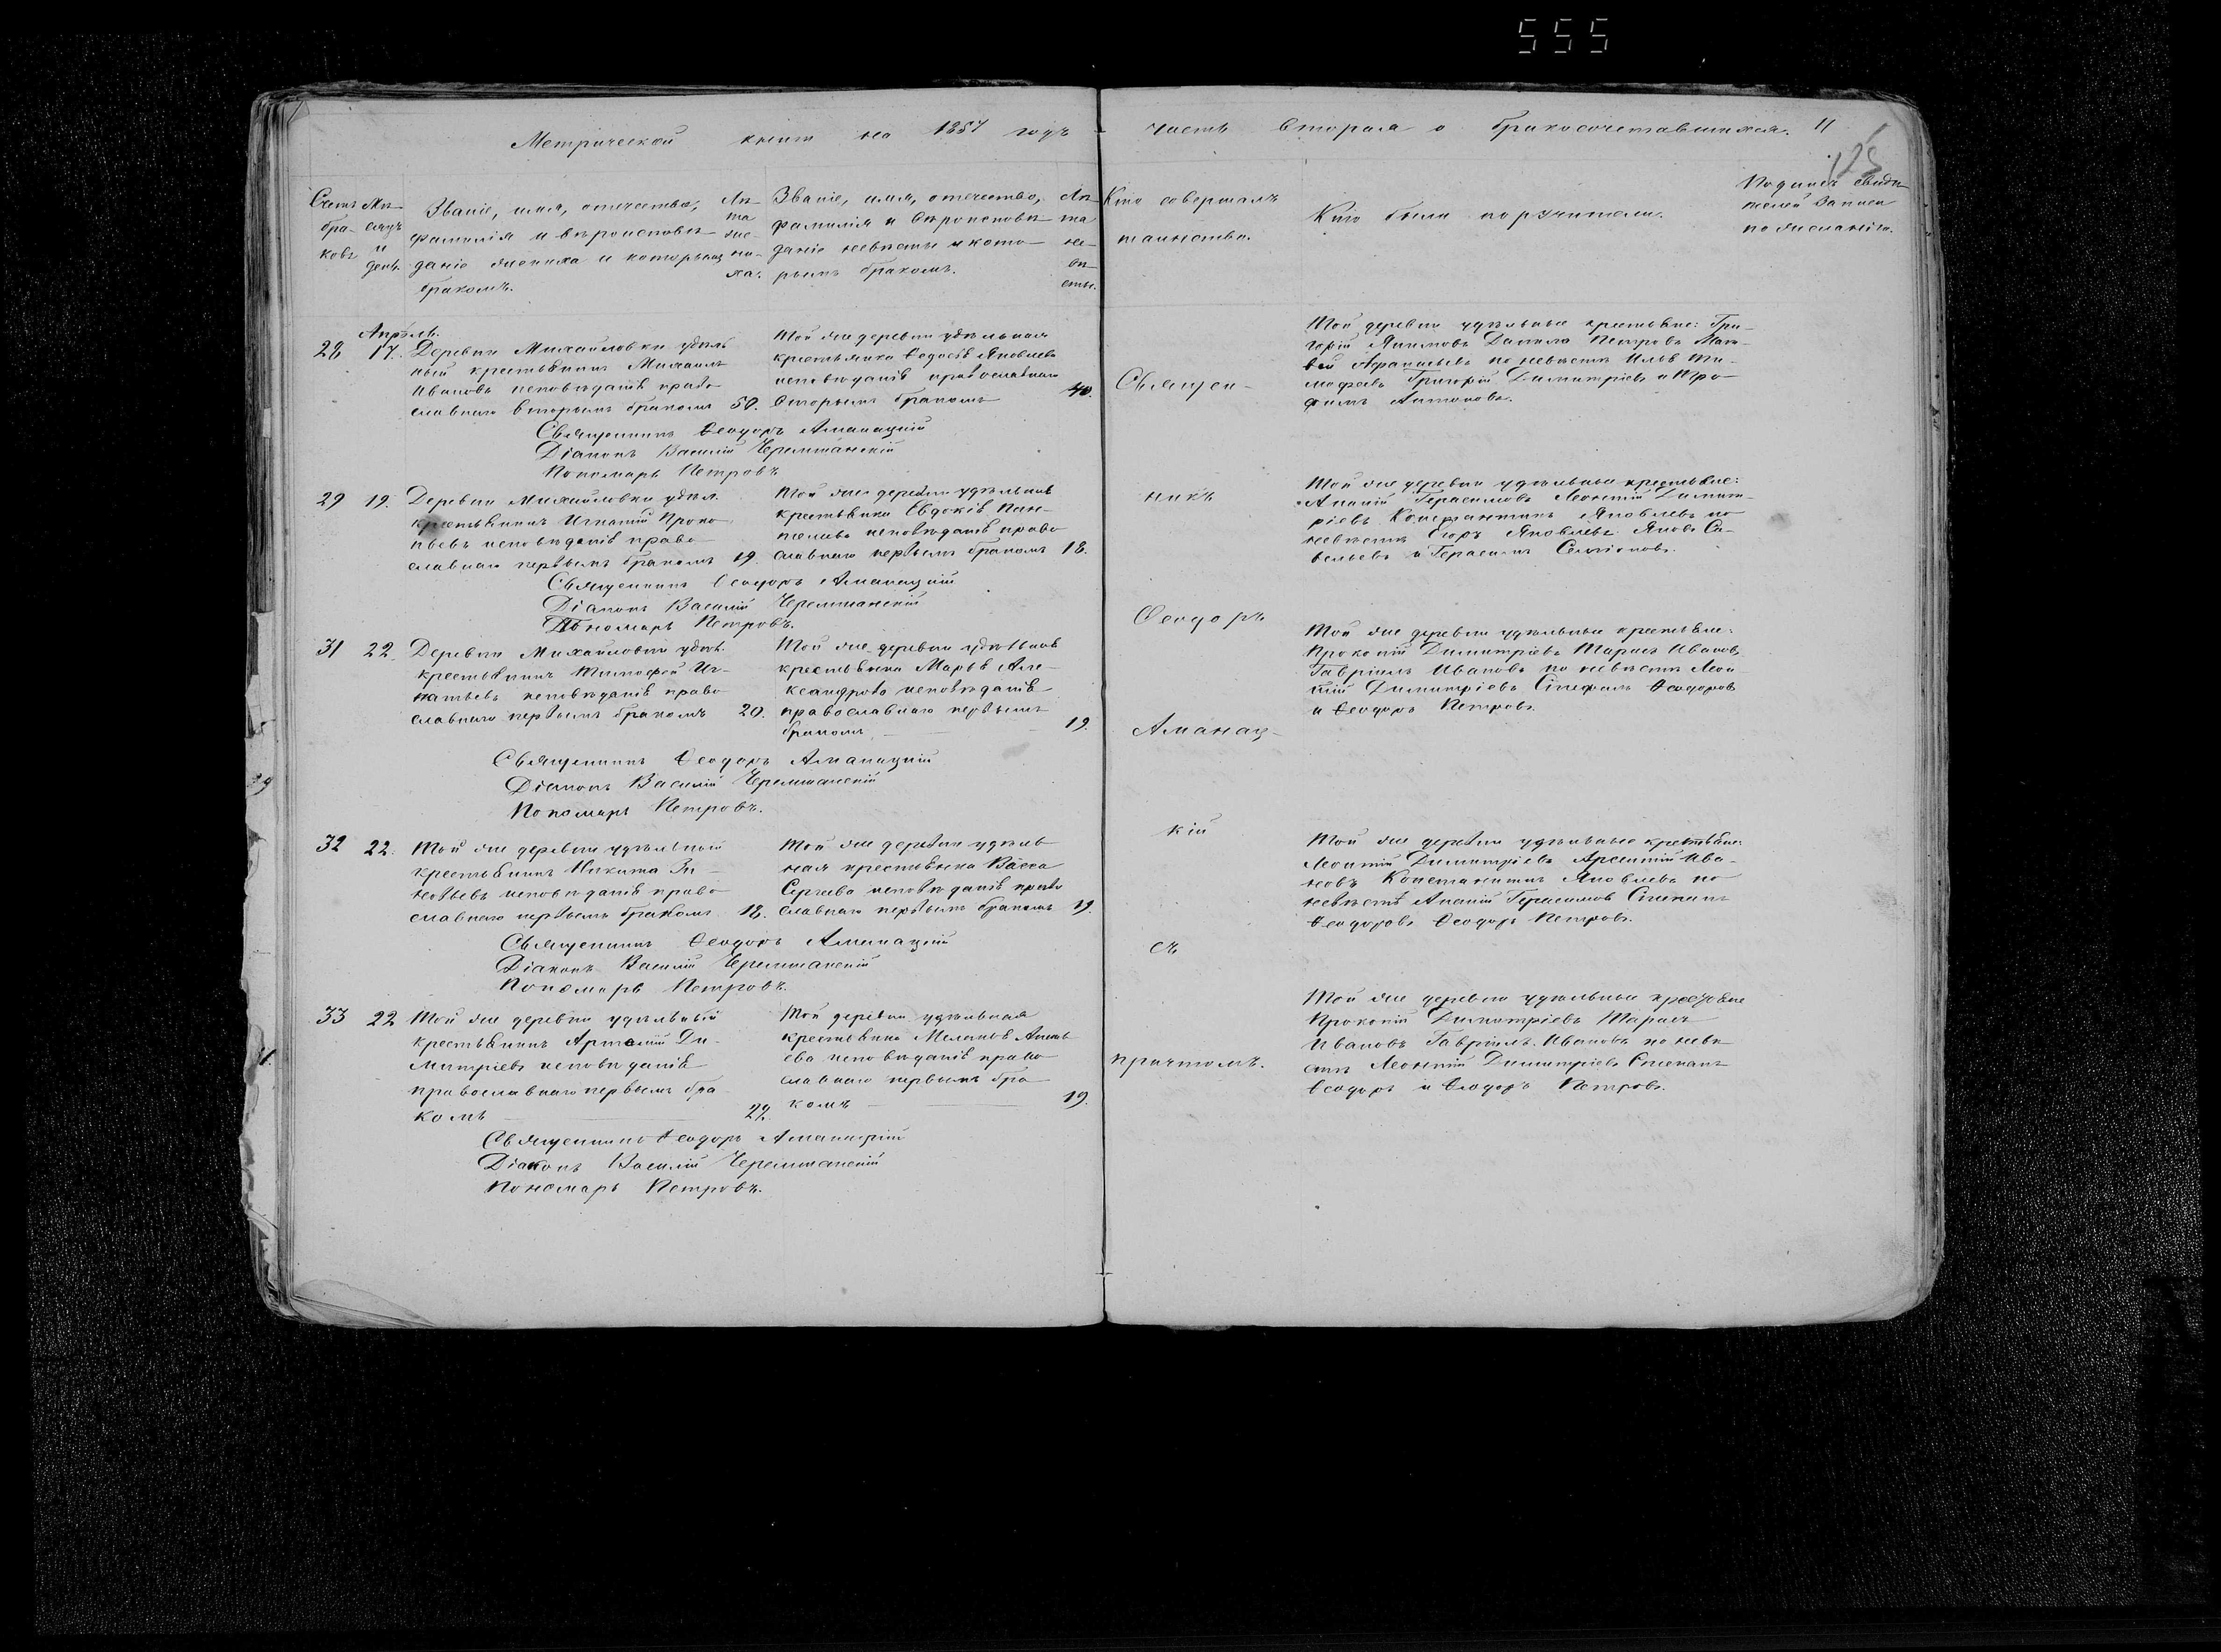 555
Метрической книги на 1857 годъ часть вторая о бракосочетавшихся. 11
125
Счетъ браковъ
Мѣсяцъ и день.
Званіе, имя, отечество,
фамилія и вѣроисповѣ-
даніе жениха и которымъ
бракомъ.
Лѣта жениха.
Званіе, имя, отечество,
фамилія и вѣроисповѣ-
даніе невѣсты и кото-
рымъ бракомъ.
Лѣта невѣсты.
Кто совершалъ
таинство.
Кто были поручители.
Подпись свидѣ-
телей записи
по желанію.
Апрѣль.
28 17. Деревни Михайловки удѣль
ный крестьянинъ Михаилъ
Ивановъ исповѣданія право
славнаго вторымъ бракомъ 50.
Той же деревни удѣльная
крестьянка Ѳедосія Яковлева
исповѣданія православнаго
вторымъ бракомъ 40.
Священ-
Той деревни удѣльные крестьяне: Гри-
горій Акимовъ Данила Петровъ Мат-
вей Афанасьевъ по невѣстѣ Илья Ти-
мофеевъ Григорій Димитріевъ и Тро-
фимъ Антоновъ.
Священникъ Ѳеодоръ Аманацкій
Діаконъ Василій Черемшанскій
Пономарь Петровъ
29 19. Деревни Михайловки удѣл.
крестьянинъ Игнатій Проко
пьевъ исповѣданія право
славнаго первымъ бракомъ 19.
Той же деревни удѣльная
крестьянка Евдокія Пан-
телеева исповѣданія право
славнаго первымъ бракомъ 18.
никъ
Той же деревни удѣльные крестьяне:
Ананій Герасимовъ Леонтій Димит-
ріевъ Константинъ Яковлевъ по
невѣстѣ Егоръ Яковлевъ Яковъ Са-
вельевъ и Герасимъ Семіоновъ.
Священникъ Ѳеодоръ Аманацкій
Діаконъ Василій Черемшанскій
Пономарь Петровъ.
Ѳеодоръ
31 22. Деревни Михайловки удѣл.
крестьянинъ Тимофей Иг-
натьевъ исповѣданія право
славнаго первымъ бракомъ 20.
Той же деревни удѣльная
крестьянка Марья Але-
ксандрова исповѣданія
православнаго первымъ
бракомъ 19.
Аманац-
Той же деревни удѣльные крестьяне:
Прокопій Димитріевъ Тарасъ Ивановъ
Гавріилъ Ивановъ по невѣстѣ Леон
тій Димитріевъ Стефанъ Ѳеодоровъ
и Ѳеодоръ Петровъ.
Священникъ Ѳеодоръ Аманацкій
Діаконъ Василій Черемшанскій
Пономарь Петровъ.
32 22. Той же деревни удѣльный
крестьянинъ Никита Зи-
новьевъ исповѣданія право
славнаго первымъ бракомъ 18.
Той же деревни удѣль
ная крестьянка Васса
Сергѣева исповѣданія право
славнаго первымъ бракомъ 19.
кій
Той же деревни удѣльные крестьяне:
Леонтій Димитріевъ Арсентій Ива-
новъ Константинъ Яковлевъ по
невѣстѣ Ананій Герасимовъ Степанъ
Ѳеодоровъ Ѳеодоръ Петровъ.
Священникъ Ѳеодоръ Аманацкій
Діаконъ Василій Черемшанскій
Пономарь Петровъ.
съ
33 22 Той же деревни удѣльный
крестьянинъ Ди-
митріевъ исповѣданія
православнаго первымъ бра
комъ 22.
Той деревни удѣльная
крестьянка Меланія
исповѣданія право
славнаго первымъ бра
комъ 19.
причтомъ.
Той же деревни удѣльные крестьяне
Прокопій Димитріевъ Тарасъ
Ивановъ Гавріилъ Ивановъ по невѣ
стѣ Леонтій Димитріевъ Степанъ
Ѳеодоръ и Ѳеодоръ Петровъ.
Священникъ Ѳеодоръ Аманацкій
Діаконъ Василій Черемшанскій
Пономарь Петровъ.